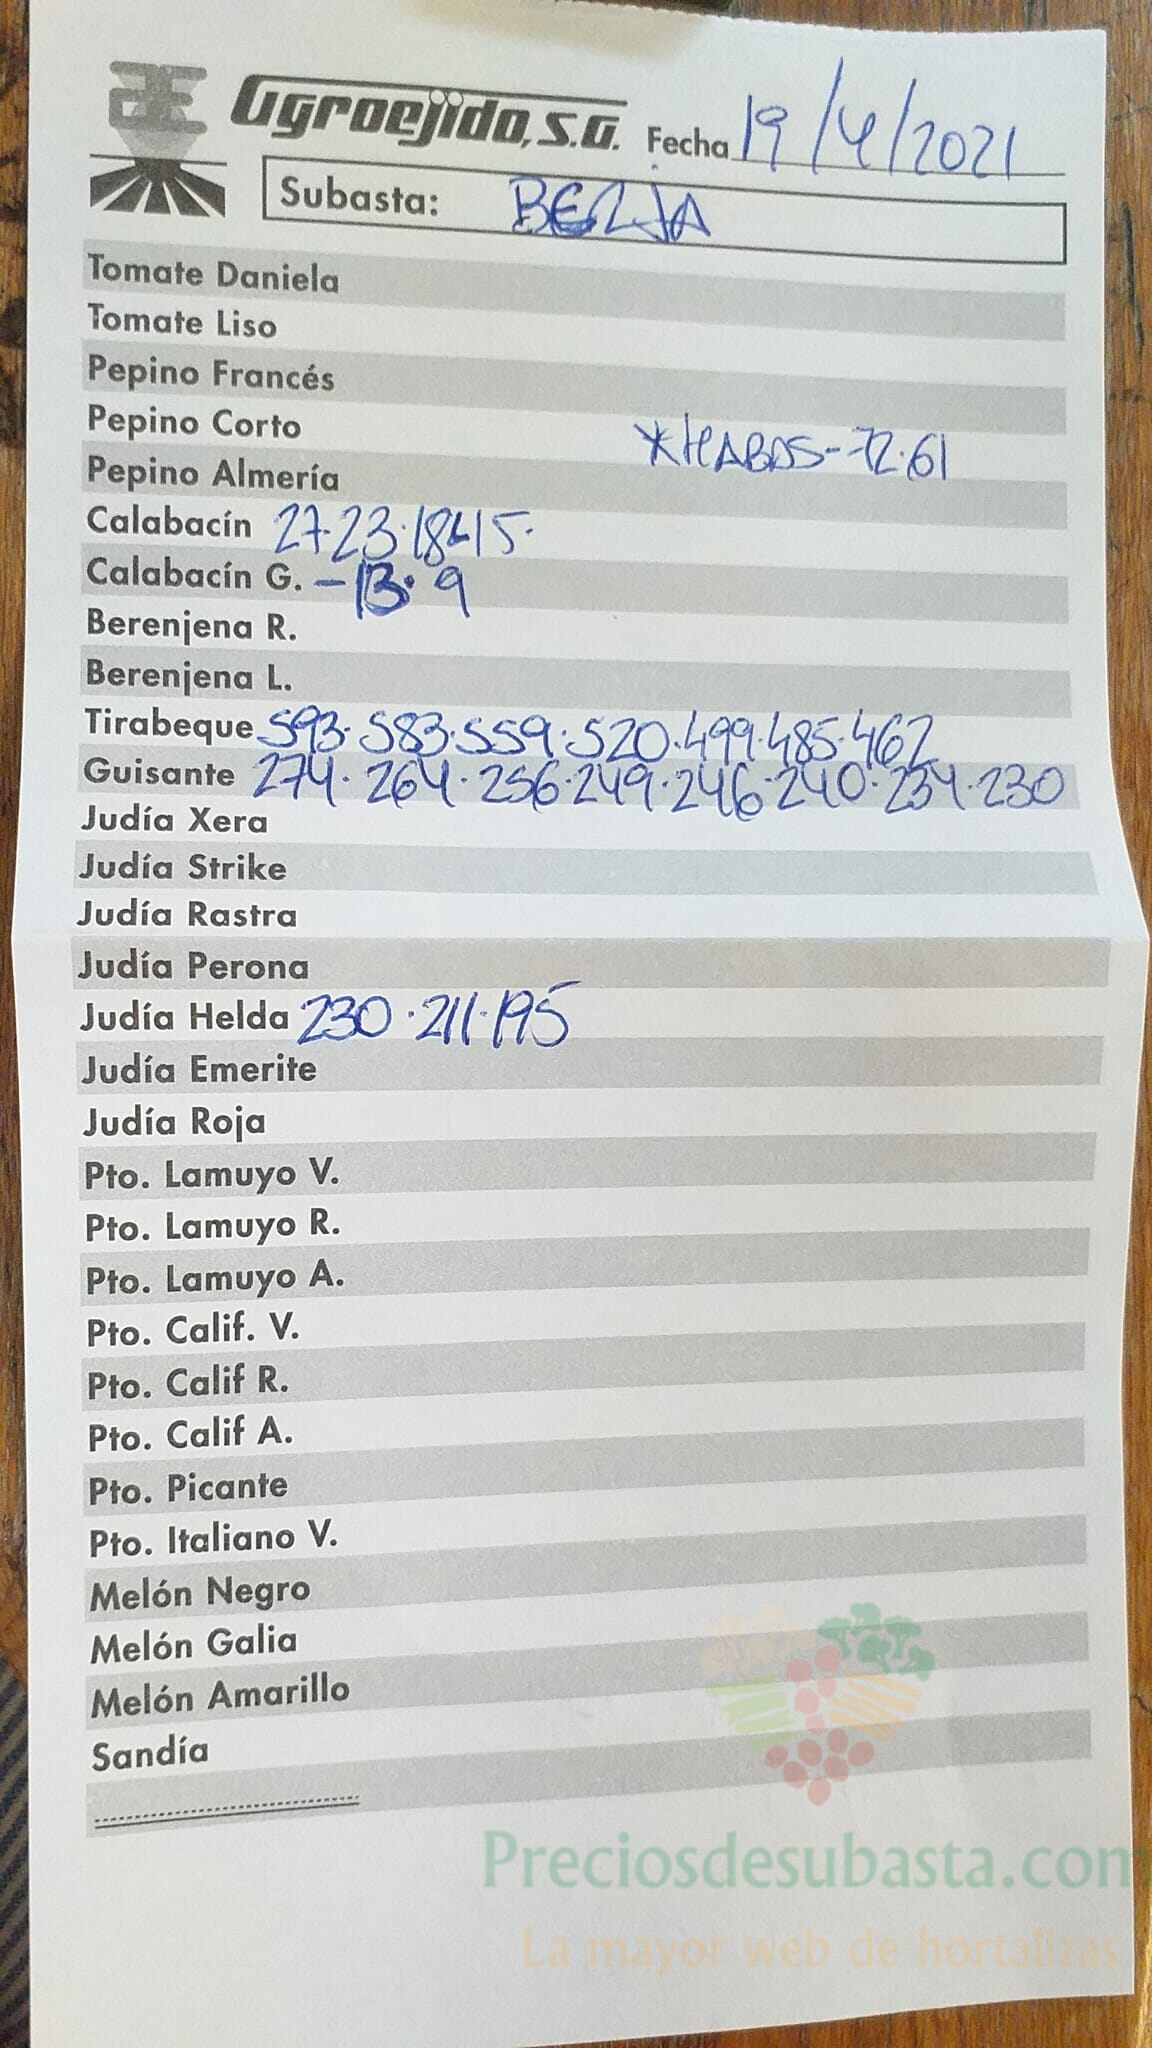 Agroejido, S.A. Fecha 19/4/2021
Subasta: BERJA
Tomate Daniela
Tomate Liso
Pepino Francés
Pepino Corto
*HABAS--72.61
Pepino Almería
Calabacín 27.23.18.15.
Calabacín G. -13.9
Berenjena R.
Berenjena L.
Tirabeque 593.583.559.520.499.485.462
Guisante 274.264.256.249.246.240.234.230
Judía Xera
Judía Strike
Judía Rastra
Judía Perona
Judía Helda 230.211.195
Judía Emerite
Judía Roja
Pto. Lamuyo V.
Pto. Lamuyo R.
Pto. Lamuyo A.
Pto. Calif. V.
Pto. Calif R.
Pto. Calif A.
Pto. Picante
Pto. Italiano V.
Melón Negro
Melón Galia
Melón Amarillo
Sandía
Preciosdesubasta.com
La mayor web de hortalizas